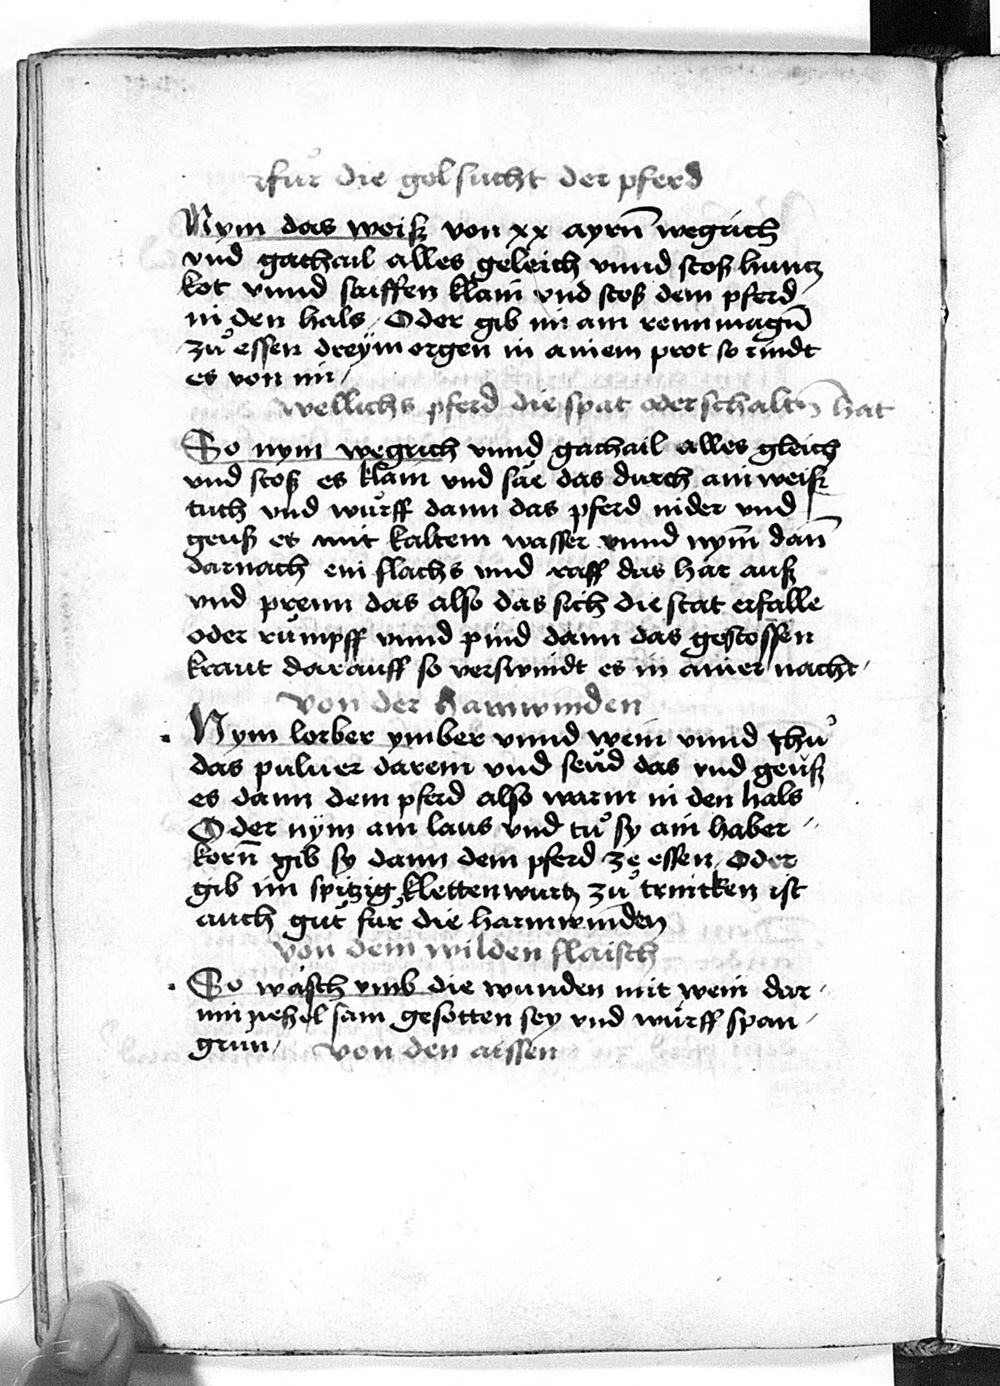 fuͦr die gelsucht der pferd
Nym das weiß von xx ayrn̄ wegrich
vnd gachail alles geleich vnnd stoß huntz
kot vnnd saiffen klain vnd stoß dem pferd
in den hals / Oder gib im ain rennmagn̄
zuͦ essen dreymorgen in ainem prot so rindt
es von im /
wellichs pferd die spat oder schaltn̄ hat
So nym wegrich vnnd gachail alles gleich
vnd stoß es klain vnd säe das durch ain weiß
tuch vnd wuͤrff dann das pferd nider vnd
geuß es mit kaltem wasser vnnd nym̄ dan̄
darnach ein flachs vnd raff das har auß
vnd prenn das also das sich die stat erfalle
oder rümpff vnnd pind dann das gestossen
kraut darauff so verswindt es in ainer nacht /
Von der Harmwinden
Nym lorber ymber vnnd wein vnnd thuͦ
das puluer darein vnd seüd das vnd geüß
es dann dem pferd also warm in den hals
Oder nym ain laus vnd tuͦ sy ain haber
korn̄ gib sy dann dem pferd ze essen / Oder
gib im spitzig klettenwurtz zuͦ trincken ist
auch guͦt fuͦr die harmwinden
Von dem wilden flaisch
So wäsch vmb die wunden mit wein dar /
inn nehel sam gesotten sey vnd würff span /
grun / Von den aissen